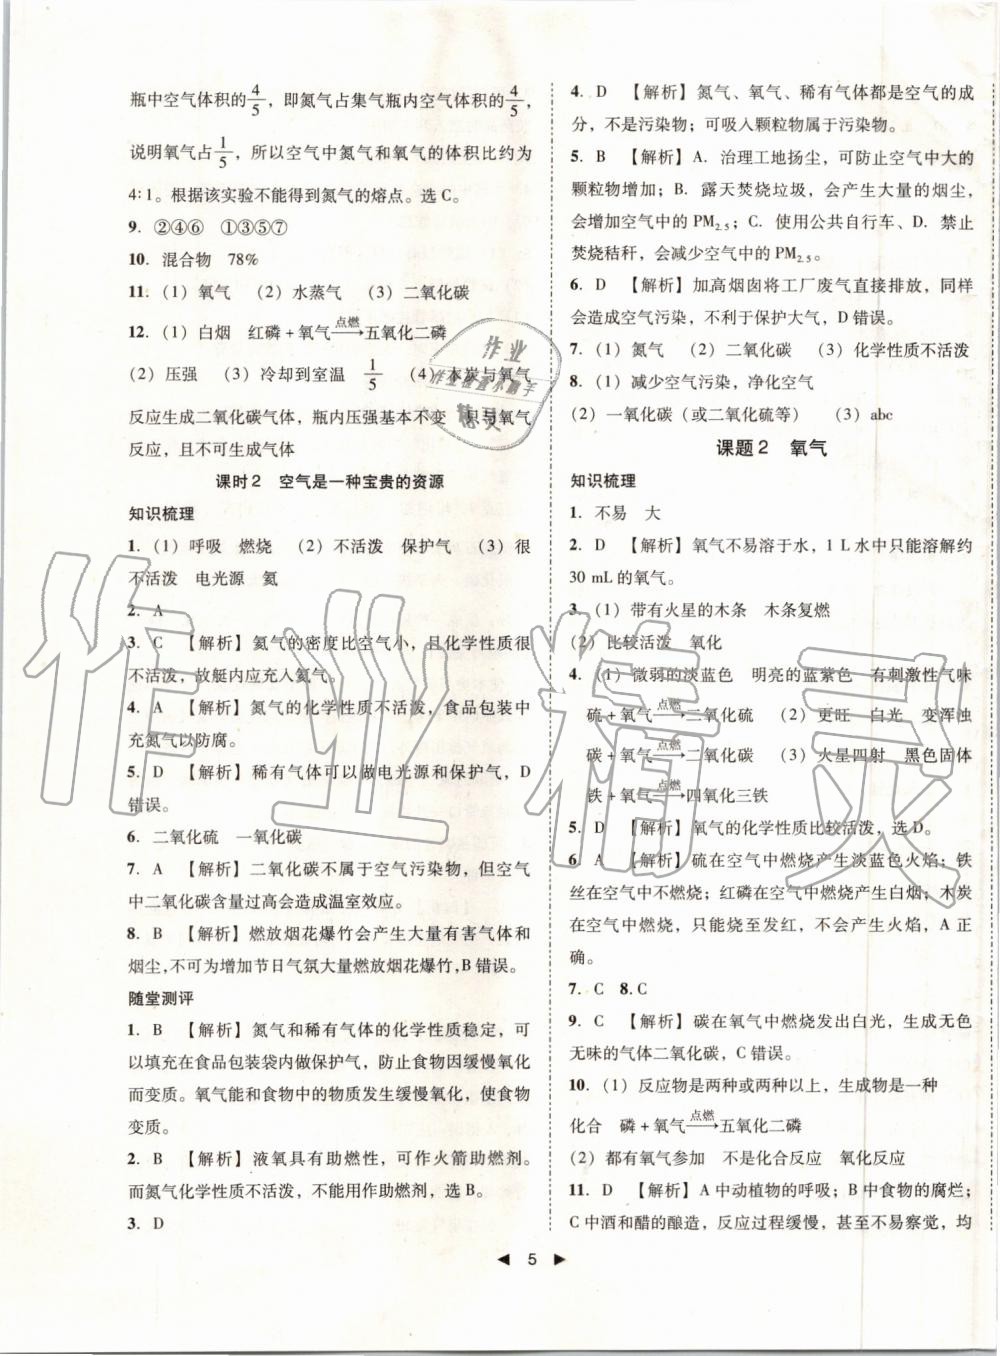 瓶中空气体积的4/5，即氮气占集气瓶内空气体积的4/5，
说明氧气占1/5，所以空气中氮气和氧气的体积比约为
4∶1。根据该实验不能得到氮气的熔点。选 C。
9. ②④⑥ ①③⑤⑦
10. 混合物 78%
11. (1) 氧气 (2) 水蒸气 (3) 二氧化碳
12. (1) 白烟 红磷＋氧气 —点燃→ 五氧化二磷
(2) 压强 (3) 冷却到室温 1/5 (4) 木炭与氧气
反应生成二氧化碳气体，瓶内压强基本不变 只与氧气
反应，且不可生成气体
课时 2 空气是一种宝贵的资源
知识梳理
1. (1) 呼吸 燃烧 (2) 不活泼 保护气 (3) 很
不活泼 电光源 氦
2. A
3. C 【解析】氦气的密度比空气小，且化学性质很
不活泼，故艇内应充入氦气。
4. A 【解析】氮气的化学性质不活泼，食品包装中
充氮气以防腐。
5. D 【解析】稀有气体可以做电光源和保护气，D
错误。
6. 二氧化硫 一氧化碳
7. A 【解析】二氧化碳不属于空气污染物，但空气
中二氧化碳含量过高会造成温室效应。
8. B 【解析】燃放烟花爆竹会产生大量有害气体和
烟尘，不可为增加节日气氛大量燃放烟花爆竹，B 错误。
随堂测评
1. B 【解析】氮气和稀有气体的化学性质稳定，可
以填充在食品包装袋内做保护气，防止食物因缓慢氧化
而变质。氧气能和食物中的物质发生缓慢氧化，使食物
变质。
2. B 【解析】液氧具有助燃性，可作火箭助燃剂。
而氮气化学性质不活泼，不能用作助燃剂，选 B。
3. D
4. D 【解析】氮气、氧气、稀有气体都是空气的成
分，不是污染物；可吸入颗粒物属于污染物。
5. B 【解析】A. 治理工地扬尘，可防止空气中大的
颗粒物增加；B. 露天焚烧垃圾，会产生大量的烟尘，
会增加空气中的 PM2.5；C. 使用公共自行车、D. 禁止
焚烧秸秆，会减少空气中的 PM2.5。
6. D 【解析】加高烟囱将工厂废气直接排放，同样
会造成空气污染，不利于保护大气，D 错误。
7. (1) 氮气 (2) 二氧化碳 (3) 化学性质不活泼
8. (1) 减少空气污染，净化空气
(2) 一氧化碳（或二氧化硫等） (3) abc
课题 2 氧气
知识梳理
1. 不易 大
2. D 【解析】氧气不易溶于水，1 L 水中只能溶解约
30 mL 的氧气。
3. (1) 带有火星的木条 木条复燃
(2) 比较活泼 氧化
4. (1) 微弱的淡蓝色 明亮的蓝紫色 有刺激性气味
硫＋氧气 —点燃→ 二氧化硫 (2) 更旺 白光 变浑浊
碳＋氧气 —点燃→ 二氧化碳 (3) 火星四射 黑色固体
铁＋氧气 —点燃→ 四氧化三铁
5. D 【解析】氧气的化学性质比较活泼，选 D。
6. A 【解析】硫在空气中燃烧产生淡蓝色火焰；铁
丝在空气中不燃烧；红磷在空气中燃烧产生白烟；木炭
在空气中燃烧，只能烧至发红，不会产生火焰，A 正
确。
7. C 8. C
9. C 【解析】碳在氧气中燃烧发出白光，生成无色
无味的气体二氧化碳，C 错误。
10. (1) 反应物是两种或两种以上，生成物是一种
化合 磷＋氧气 —点燃→ 五氧化二磷
(2) 都有氧气参加 不是化合反应 氧化反应
11. D 【解析】A 中动植物的呼吸；B 中食物的腐烂；
C 中酒和醋的酿造，反应过程缓慢，甚至不易察觉，均
◄ 5 ►
作业精灵